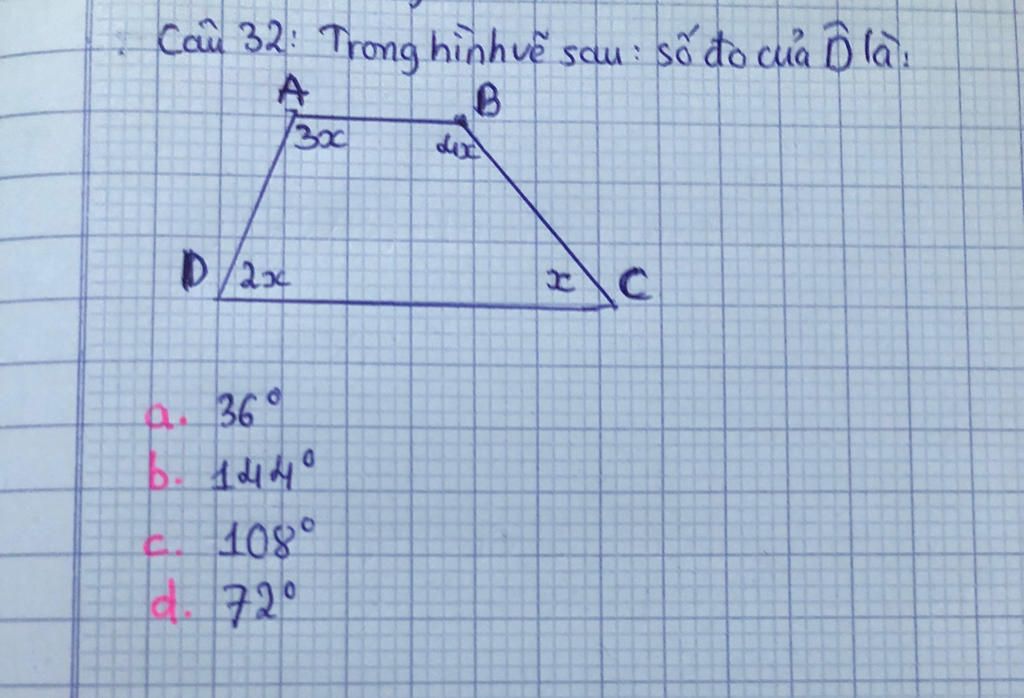 Câu 32: Trong hình vẽ sau: số đo của D̂ là:
A
B
3x
4x
D
2x
x
C
a. 36°
b. 144°
c. 108°
d. 72°